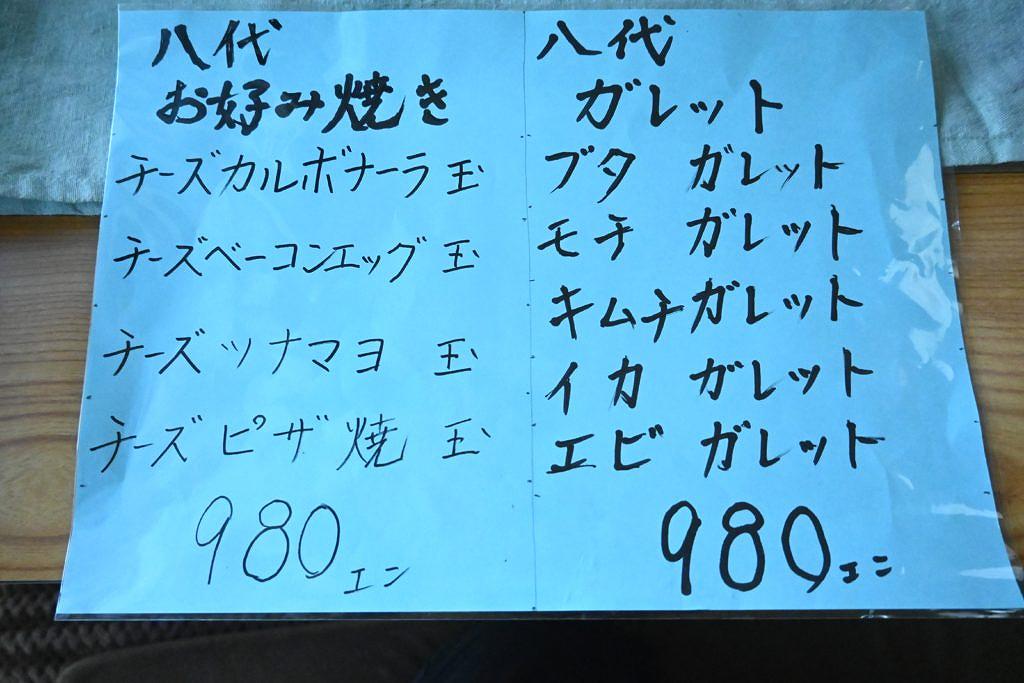 八代
お好み焼き
チーズカルボナーラ玉
チーズベーコンエッグ玉
チーズツナマヨ 玉
チーズピザ焼 玉
980エン
八代
ガレット
ブタ ガレット
モチ ガレット
キムチガレット
イカ ガレット
エビ ガレット
980エン